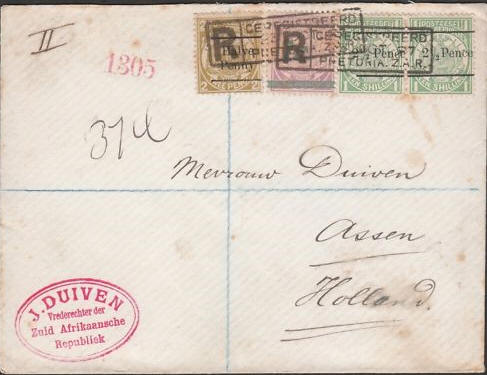 II
1305
R
R
GEREGISTREERD
PRETORIA. Z.A.R.
Halve
Penny
2½ Pence
2½ Pence
POSTZEGEL
EEN SHILLING
EEN SHILLING
Mevrouw Duiven
Assen
Holland.
J. DUIVEN
Vrederechter der
Zuid Afrikaansche
Republiek